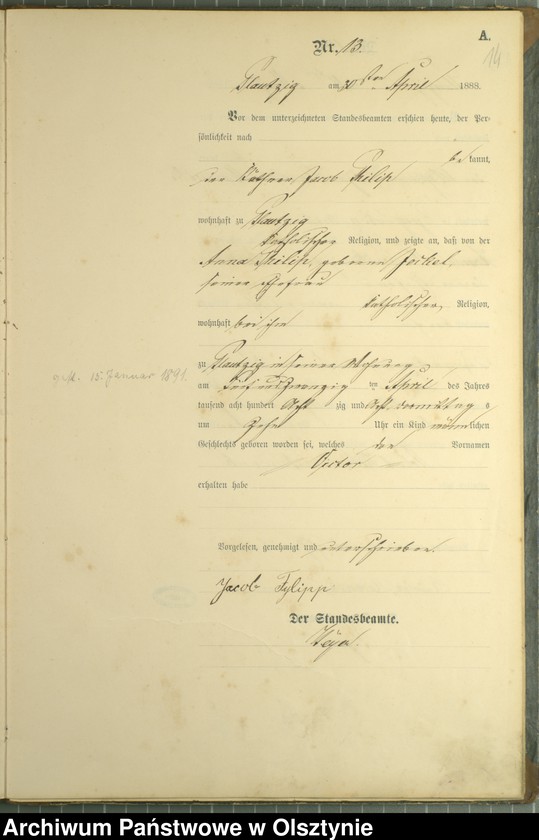 A.
14
Nr. 13.
Plautzig am 30ten April 1888.
Vor dem unterzeichneten Standesbeamten erschien heute, der Per-
sönlichkeit nach
be kannt,
der Käthner Jacob Philip
wohnhaft zu Plautzig
katholischer Religion, und zeigte an, daß von der
Anna Philip, geborene Jockel,
seiner Ehefrau
katholischer Religion,
wohnhaft bei ihm
zu Plautzig in seiner Wohnung
am fünfundzwanzig ten April des Jahres
tausend acht hundert Acht zig und Acht, vormittags
um Zehn Uhr ein Kind männlichen
Geschlechts geboren worden sei, welches den Vornamen
erhalten habe
gest. 15. Januar 1891.
Vorgelesen, genehmigt und unterschrieben.
Jacob Fylipp
Der Standesbeamte.
Archiwum Państwowe w Olsztynie